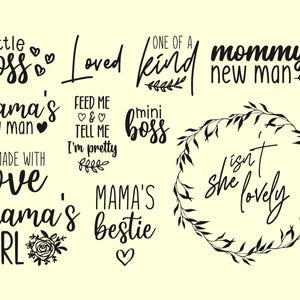 ttle
oss
Loved
ONE OF A
kind
mommy
new man
ama's
w man
FEED ME
&
TELL
ME
I'm pretty
mini
boss
MADE WITH
ove
ama's
RL
MAMA'S
bestie
isn't
she
lovely